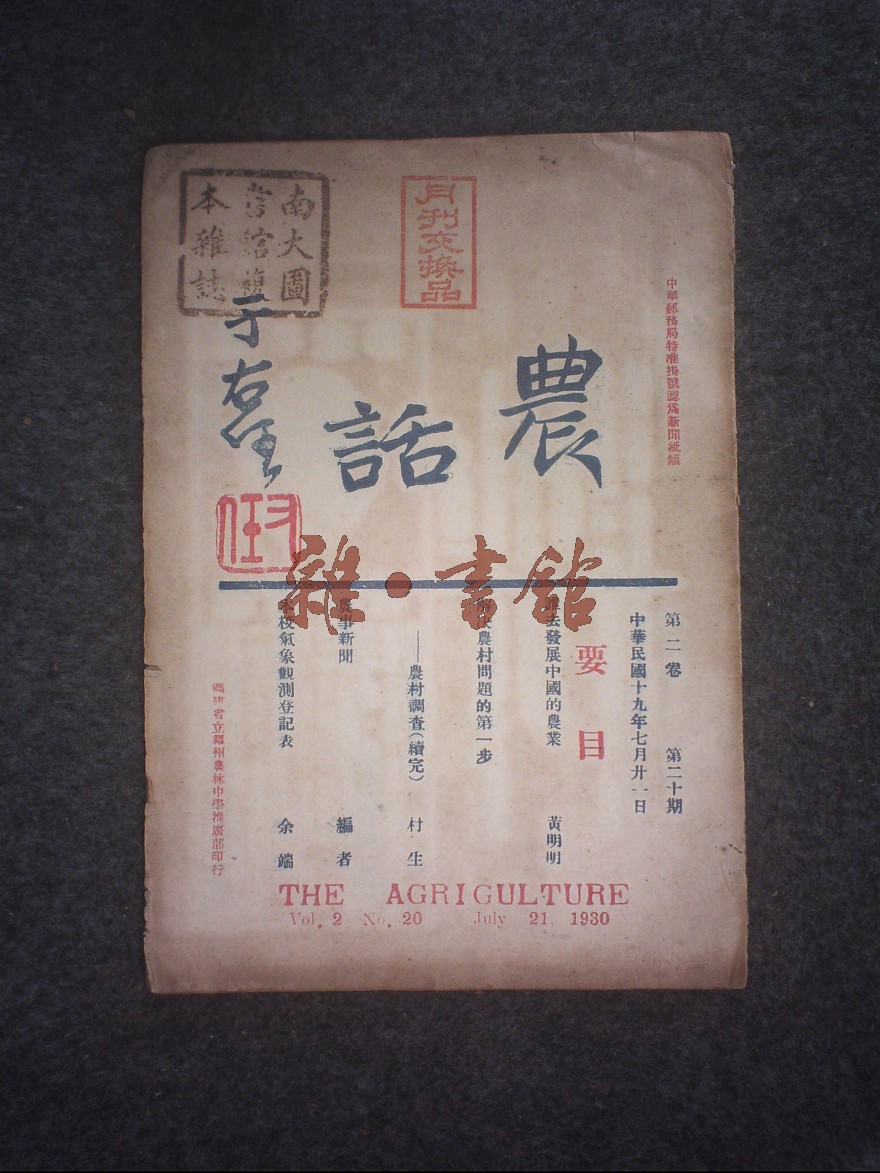 中華郵務局特准掛號認爲新聞紙類
月刊交換品
南大圖
書館複
本雜誌
農話
于右任
雜·書館
第二卷 第二十期
中華民國十九年七月廿一日
要目
誰去發展中國的農業 黃明明
解決農村問題的第一步
——農村調查(續完) 村生
農事新聞 編者
本校氣象觀測登記表 余端
福建省立福州農林中學推廣部印行
THE AGRIGULTURE
Vol. 2 No. 20 July 21, 1930